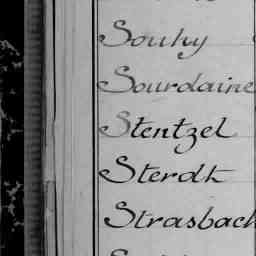 Souhy
Sourdaine
Stentzel
Sterdt
Strasbach